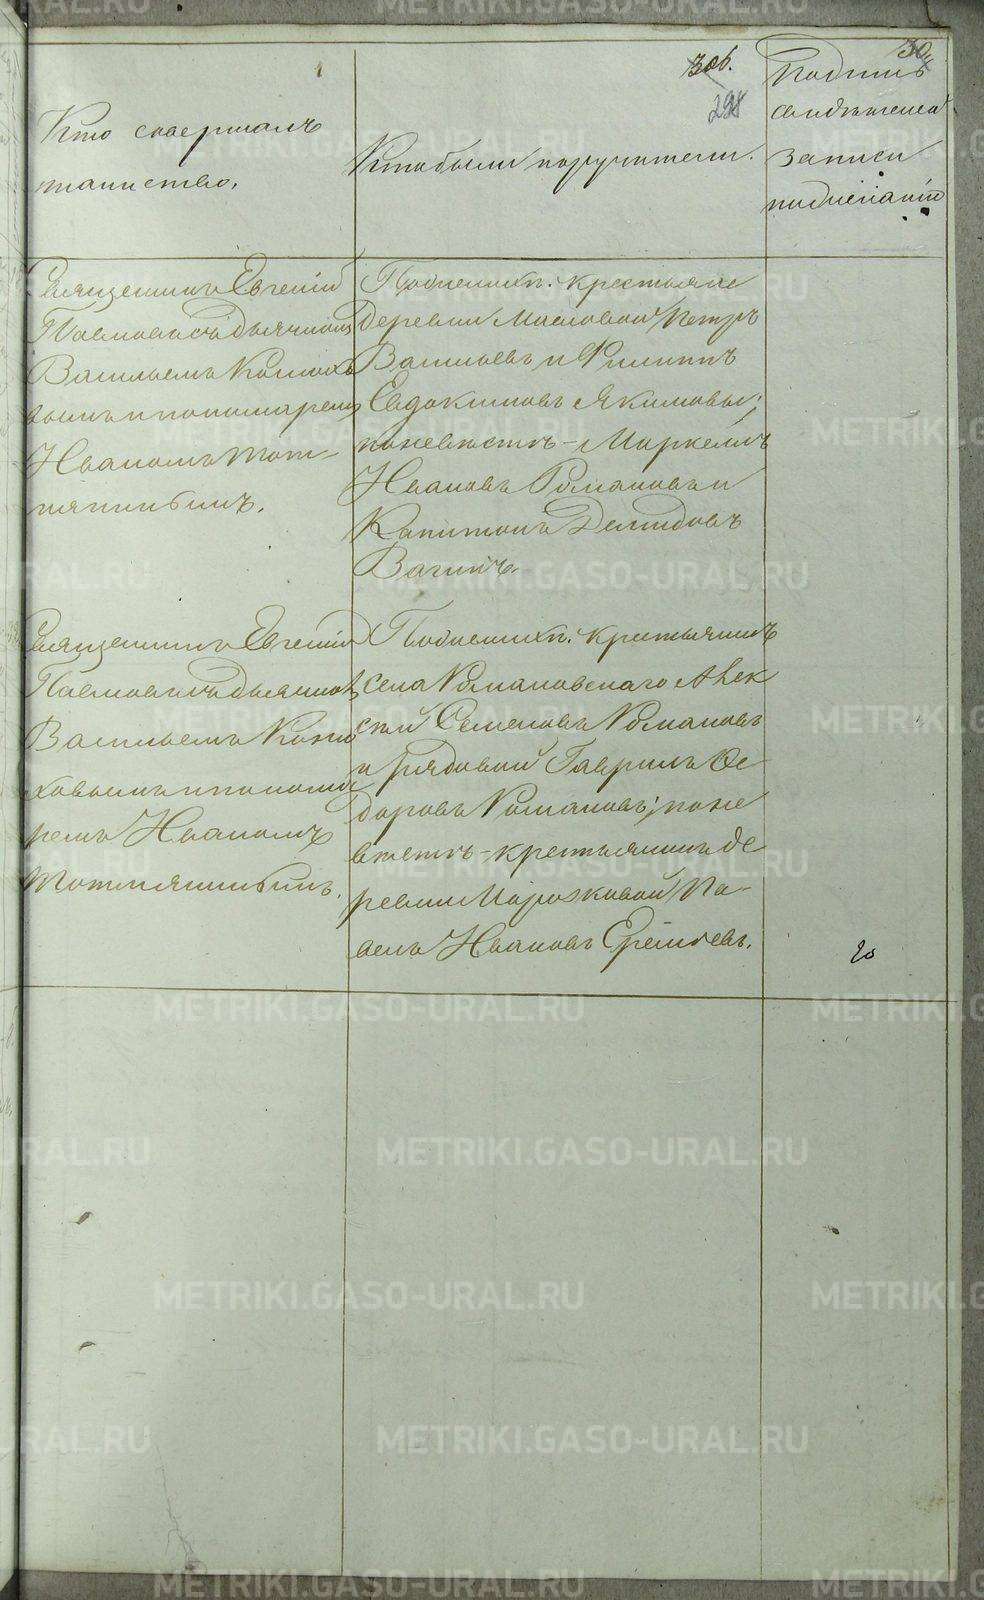 306.
298
30
Кто совершалъ
таинство.
Кто были поручители.
Подпись
свидѣтелей
записи
по желанію
Священникъ Евгеній
Павловъ съ дьячкомъ
Васильемъ Кожев
вымъ и пономаремъ
Иваномъ Тот-
мянинымъ.
По женихѣ: крестьяне
деревни Масловой Петръ
Васильевъ и Филиппъ
Евдокимовъ Якимовы;
по невѣстѣ - Маркеллъ
Ивановъ Романовъ и
Капитонъ Демидовъ
Вагинъ.
Священникъ Евгеній
Павловъ съ дьячкомъ
Васильемъ
и понома
ремъ Иваномъ
Тотмянинымъ.
По женихѣ: крестьянинъ
села Романовскаго Алек
сѣй Семеновъ Романовъ
и рядовой Гаврилъ Ѳе-
доровъ Романовъ; по не
вѣстѣ - крестьянинъ де
ревни Морозковой Па-
велъ Ивановъ Еремѣевъ.
20
METRIKI.GASO-URAL.RU